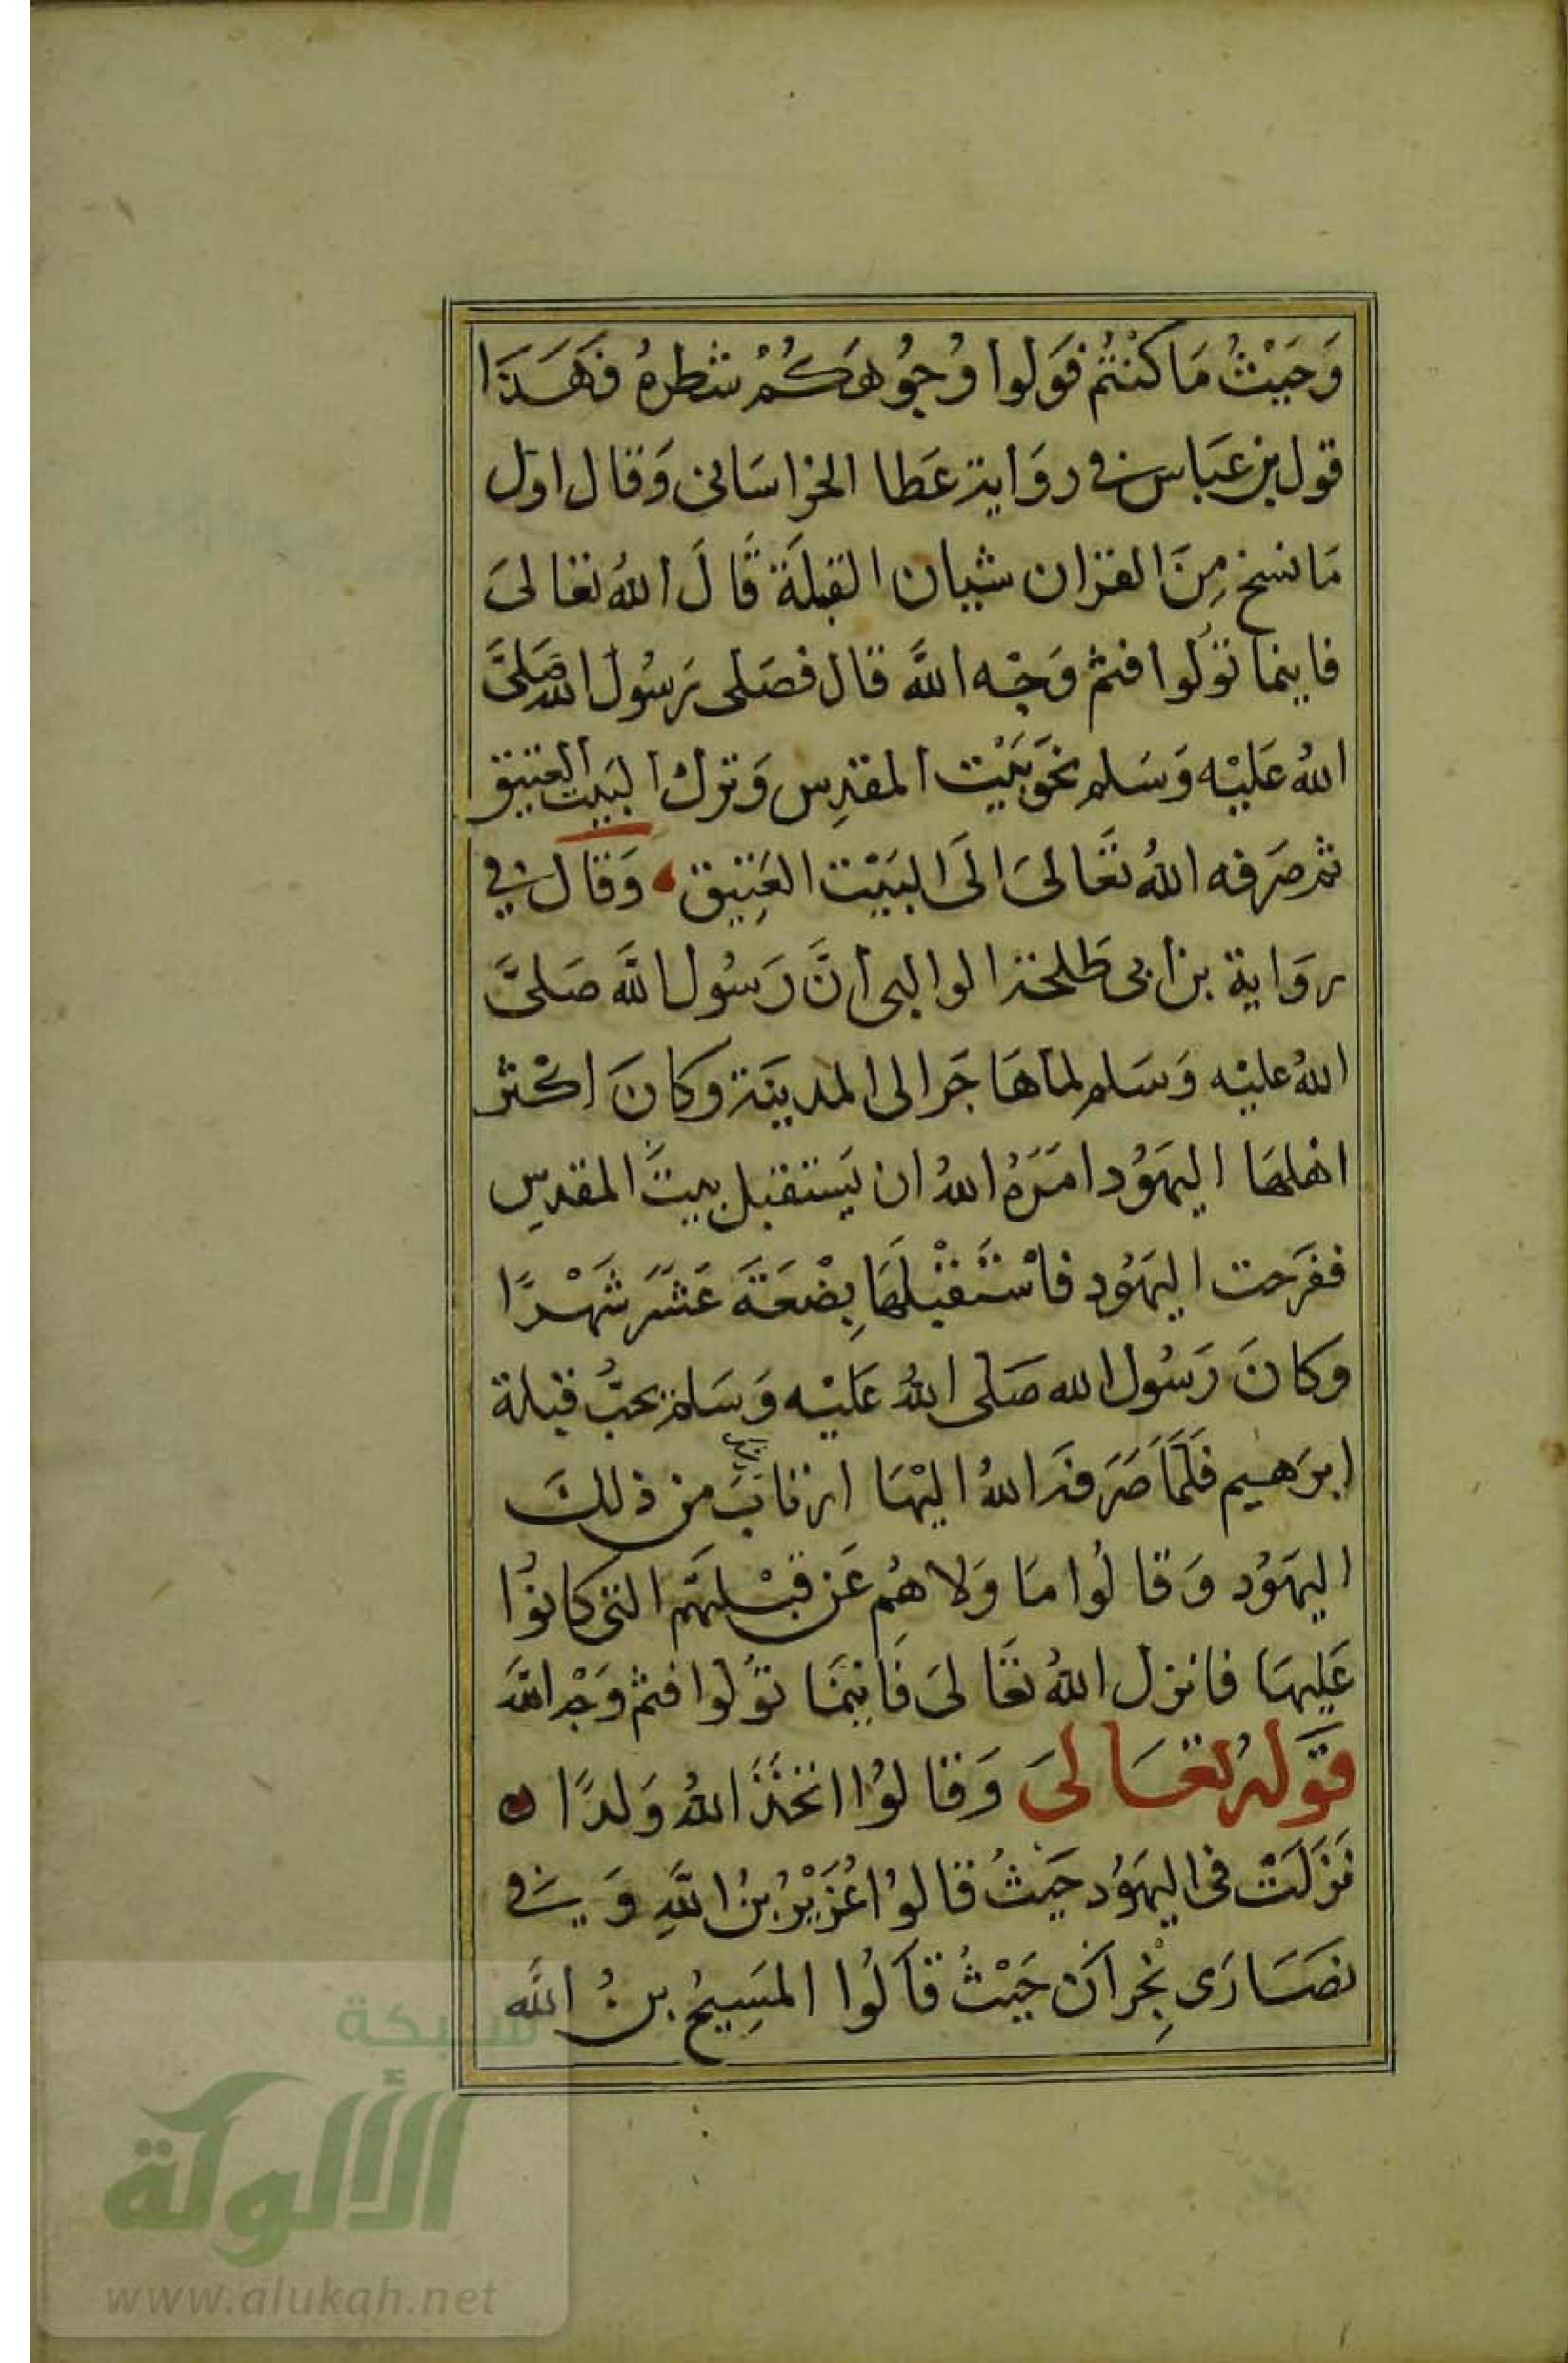 وَحَيْثُ مَا كُنْتُمْ فَوَلوا وُجُوُهَكُمْ شطرهُ فَهَذَا
قول بن عَبَاس في روَاية عَطا الخراسَانى وَقال اول
مَا نسخ مِنَ القران شيان القبلَة قَالَ اللهُ تعَالىَ
فاينما تَوَلوا فثم وَجْه اللَّه قال فصَلى رَسُول الله صَلىَّ
اللهُ عَليْه وَسَلم نحوَ بَيْت المقدِس وَترك البَيت العتيق
ثم صَرَفه اللهُ تعَالىَ الىَ البَيْت العَتِيق وَقال في
روَاية بن ابى طَلحة الوالبى انَّ رَسُول اللَّه صَلىَّ
اللهُ عليْه وَسَلم لما هَاجَر الى المدينَة وكانَ اكْثر
اهلهَا اليهَوُد امَرَهُ اللهُ ان يَستقبل بيتَ المقدِس
ففرَحت اليهَوُد فاسْتَقْبَلهَا بِضْعَةَ عَشَرَ شَهْرًا
وكانَ رَسُول الله صَلى اللهُ عَليْه وَسَلم يحبُّ قبلة
ابرَهيم فَلَمَّا صَرَفه اللهُ اليْهَا ارتابَ من ذلكَ
اليهَوُد وَقالُوا مَا وَلاهُم عَن قبْلتهَم التى كانوُا
عَليهَا فانزل اللهُ تعَالىَ فَاينمَا توَلوا فثم وَجْه اللَّه
قوَله تعَالىَ وَقالوُا اتخَذَ اللهُ وَلدًا
نَزَلَتْ فى اليهَوُد حَيْثُ قالوُا عُزَيْرُ بنُ اللَّهِ وَفي
نصَارَى نجِرانَ حَيْثُ قَالُوا المَسِيحُ بنُ اللَّه
شبكة
الألوكة
www.alukah.net